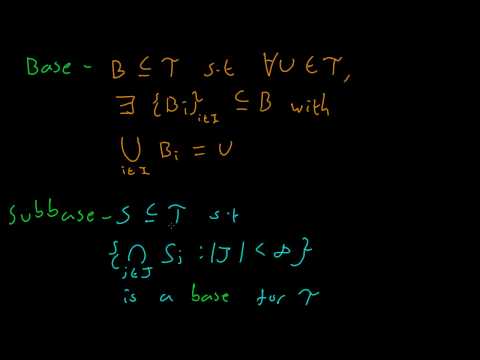 Base - B ⊆ τ s.t ∀U ∈ τ,
∃ {Bi}i∈I ⊆ B with
⋃i∈I Bi = U
Subbase - S ⊆ τ s.t
{⋂j∈J Sj : |J| < ∞}
is a base for τ